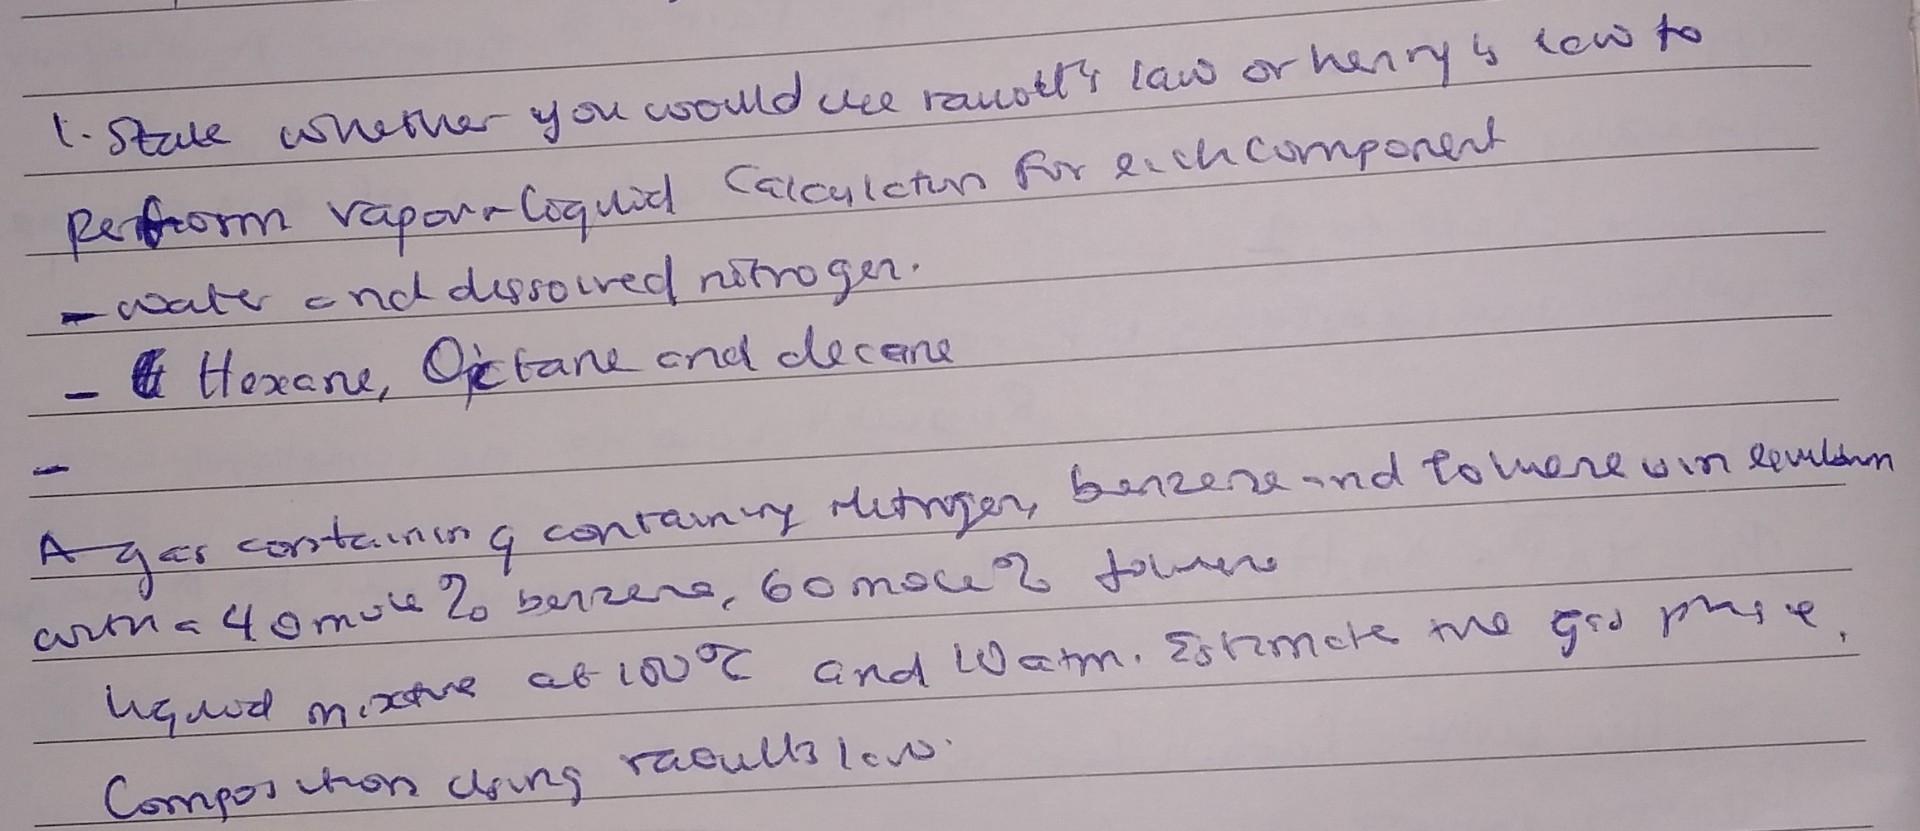 1. State whether you would use raoult's law or henry's law to
Perform vapour-Loquid Calculation for each component
- water and dissolved nitrogen.
- Hexane, Octane and decane
-
A gas containing containing Nitrogen, benzene and toluene is in
with a 40 mole % benzene, 60 mole % toluene
liquid mixture at 100°C and 10 atm. Estimate the gas phase,
Composition using raoults law.